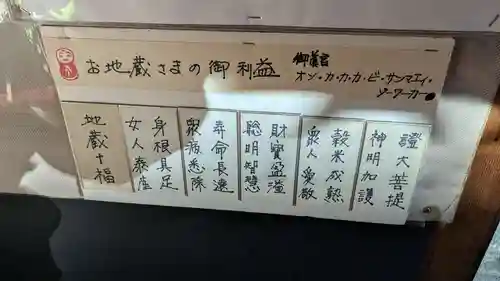 お地蔵さまの御利益
御真言
オン・カ・カ・カ・ビ・サンマエイ・
ソーワーカー。
證大菩提
神明加護
穀米成熟
衆人愛敬
財寶盈溢
聰明智慧
寿命長遠
衆病悉除
身根具足
女人泰産
地蔵十福